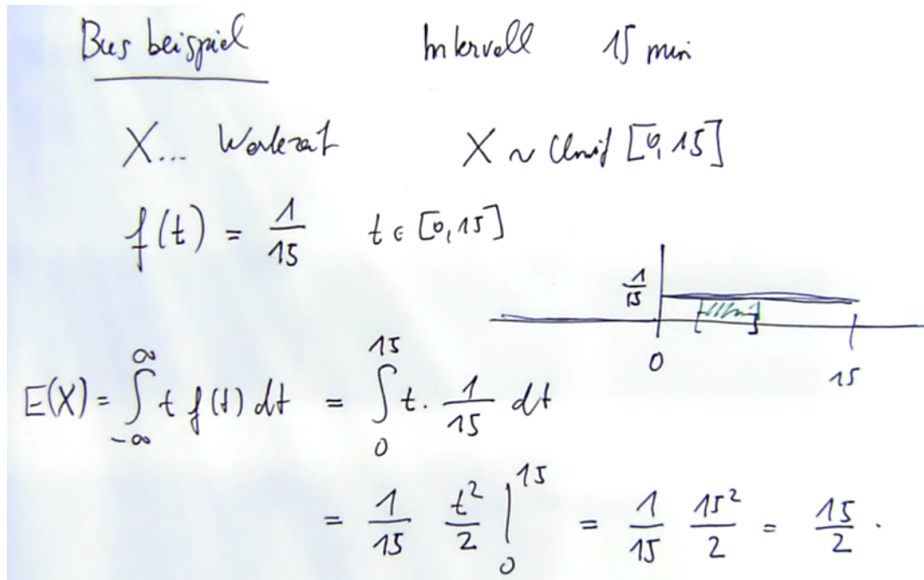 Busbeispiel Intervall 15 min
X... Wartezeit X ~ Unif [0, 15]
f(t) = 1/15 t ∈ [0, 15]
1/15
0 15
E(X) = ∫_{-∞}^{∞} t f(t) dt = ∫_0^{15} t · 1/15 dt
= 1/15 t²/2 |_0^{15} = 1/15 15²/2 = 15/2 .